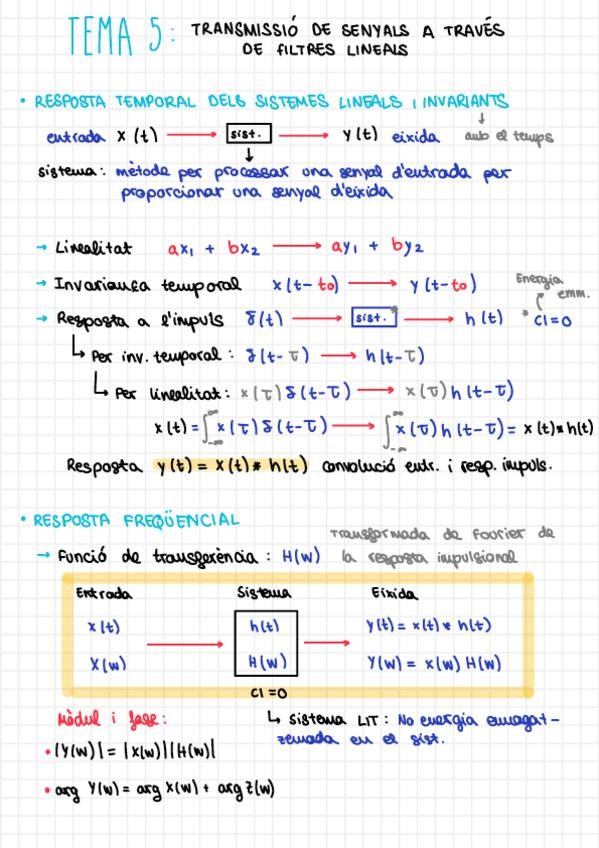 TEMA 5: TRANSMISSIÓ DE SENYALS A TRAVÉS
DE FILTRES LINEALS
• RESPOSTA TEMPORAL DELS SISTEMES LINEALS I INVARIANTS
↓
entrada x(t) → sist. → y(t) eixida amb el temps
↓
sistema: mètode per processar una senyal d'entrada per
proporcionar una senyal d'eixida
→ Linealitat ax₁ + bx₂ → ay₁ + by₂
→ Invariança temporal x(t-to) → y(t-to)
Energia
emm.
→ Resposta a l'impuls δ(t) → sist.* → h(t) * CI=0
↳ Per inv. temporal: δ(t-τ) → h(t-τ)
↳ Per linealitat: x(τ)δ(t-τ) → x(τ)h(t-τ)
x(t) = ∫_{-∞}^{∞} x(τ)δ(t-τ) → ∫_{-∞}^{∞} x(τ)h(t-τ) = x(t)*h(t)
Resposta y(t) = x(t) * h(t) convolució entr. i resp. impuls.
• RESPOSTA FREQÜENCIAL
Transformada de Fourier de
→ Funció de transferència: H(w) la resposta impulsional
Entrada Sistema Eixida
x(t) h(t) y(t) = x(t) * h(t)
→ →
X(w) H(w) Y(w) = x(w) H(w)
CI=0
Mòdul i fase: ↳ Sistema LIT: No energia emmagat-
zemada en el sist.
• |Y(w)| = |x(w)||H(w)|
• arg Y(w) = arg x(w) + arg z(w)